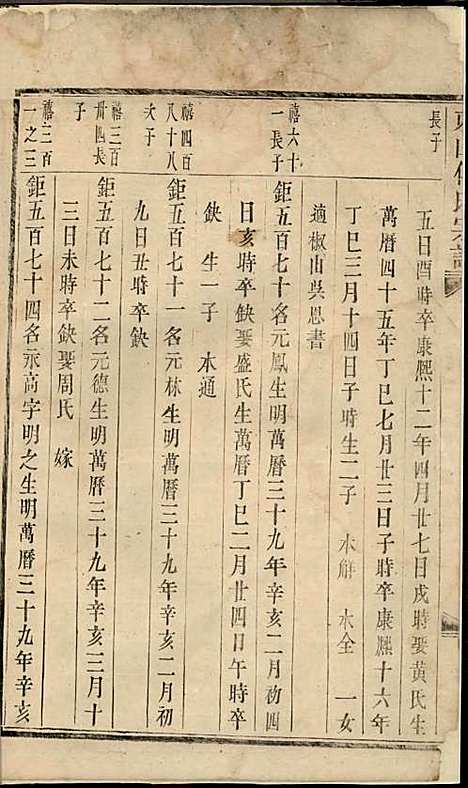 長子
五日酉時卒康熙十二年四月廿七日戌時娶黃氏生
萬曆四十五年丁巳七月廿三日子時卒康熙十六年
丁巳三月十四日子時生二子 水解 水全 一女
適椒山吳恩書
禧六十一長子
鉅五百七十名元鳳生明萬曆三十九年辛亥二月初四
日亥時卒缺娶盛氏生萬曆丁巳二月廿四日午時卒
缺 生一子 水通
禧四百八十八次子
鉅五百七十一名元林生明萬曆三十九年辛亥二月初
九日丑時卒缺
禧三百卅四長子
鉅五百七十二名元德生明萬曆三十九年辛亥三月十
三日未時卒缺娶周氏 嫁
禧三百一之三
鉅五百七十四名永高字明之生明萬曆三十九年辛亥